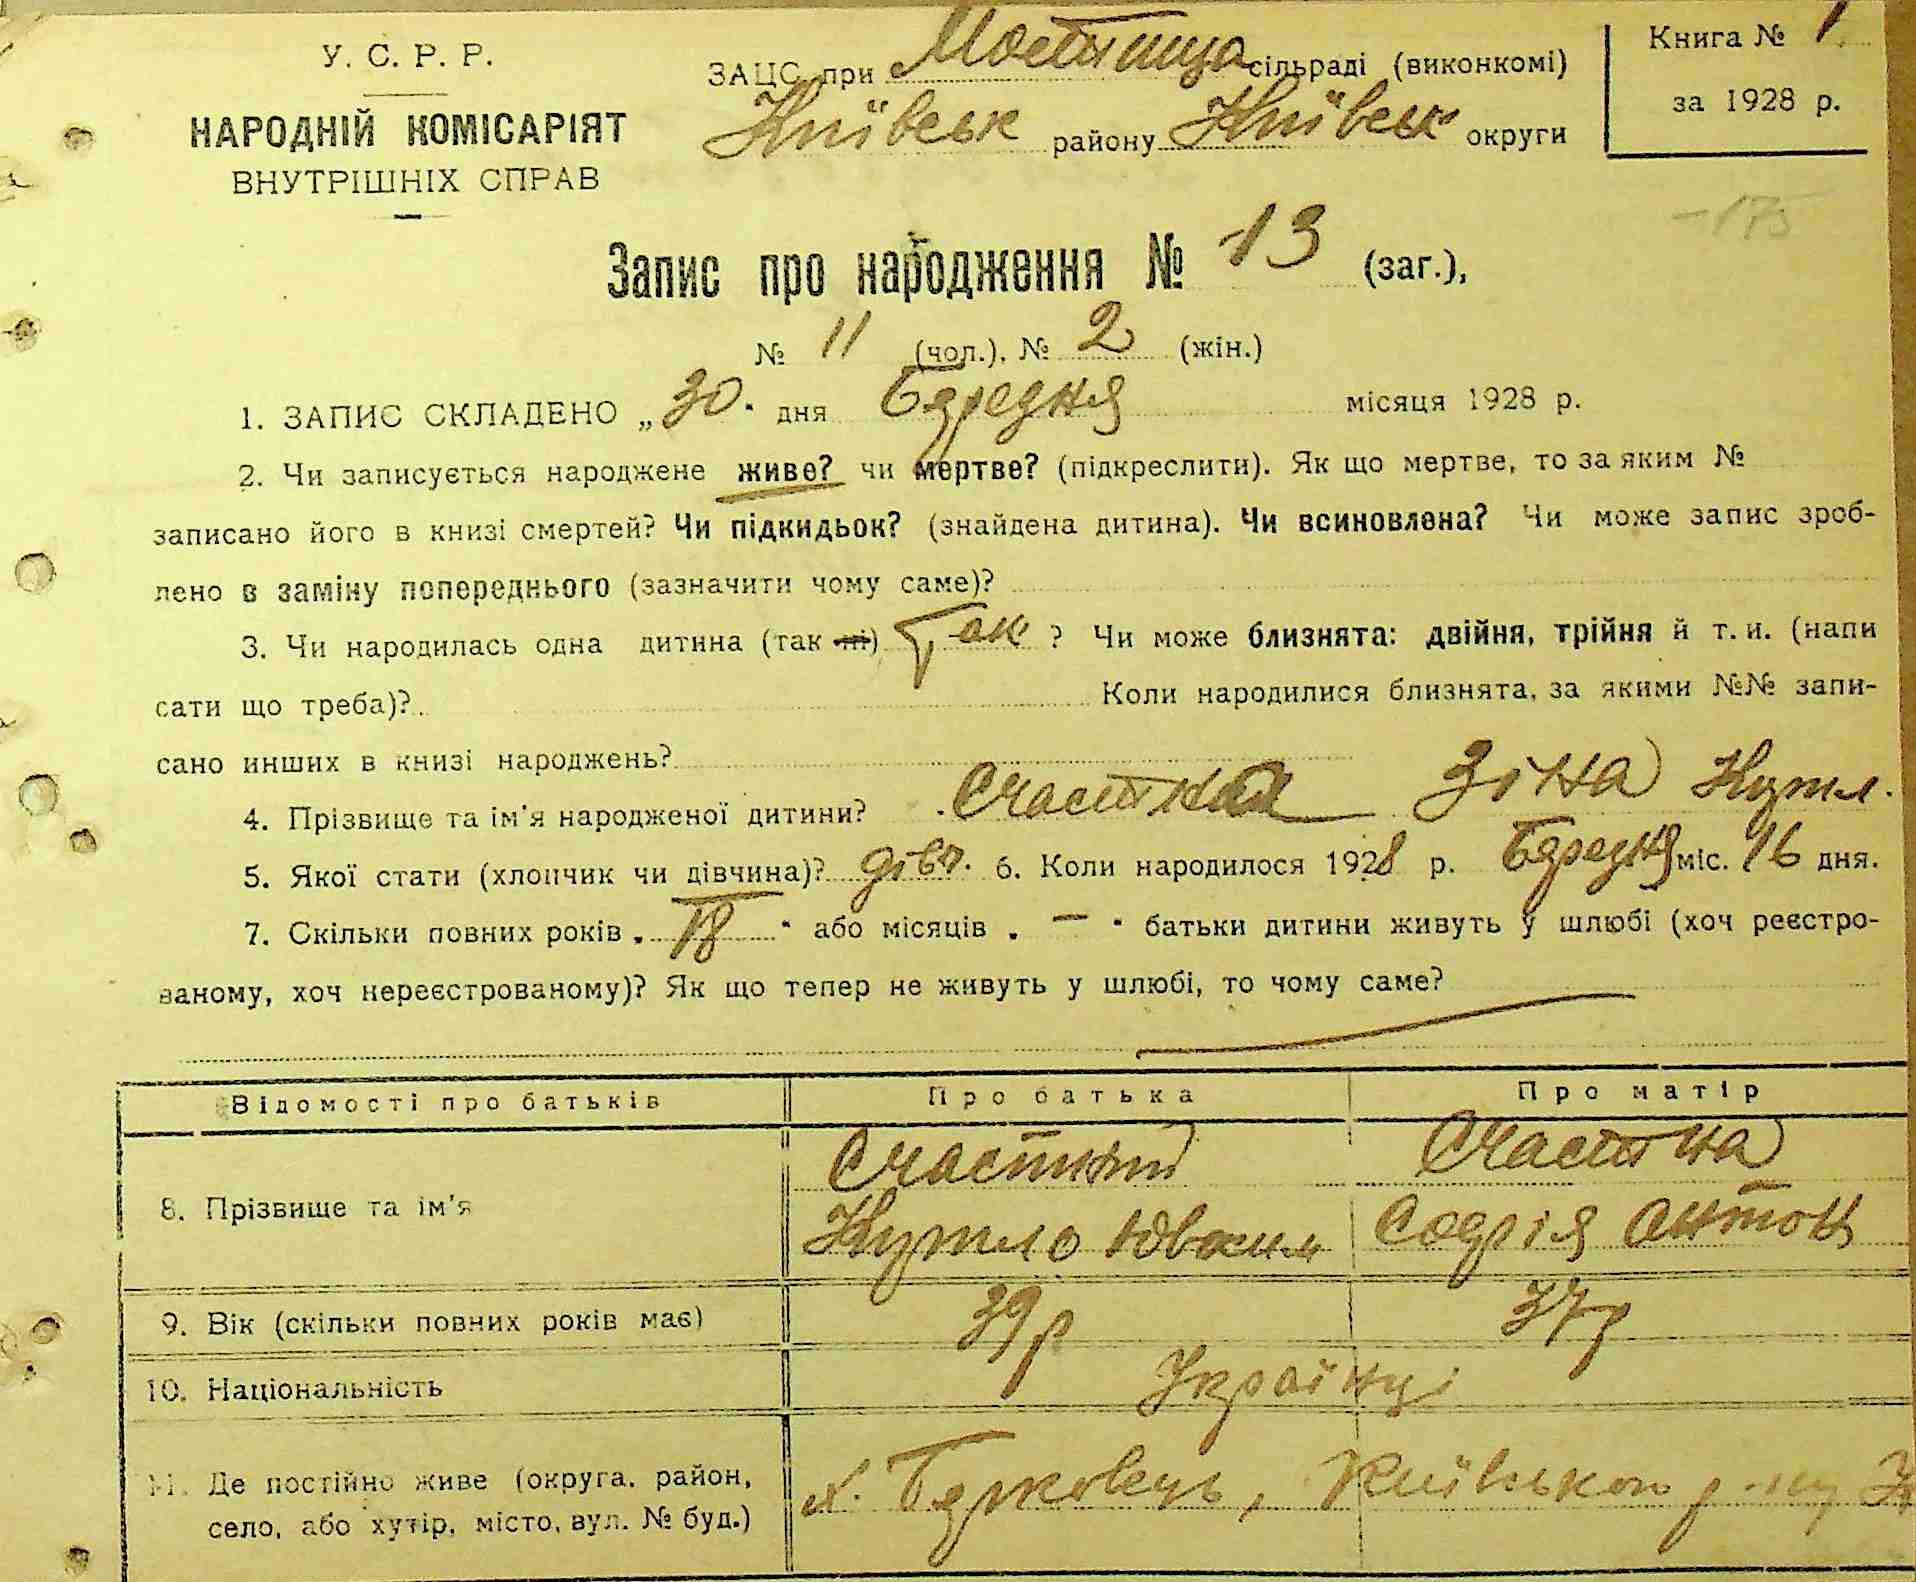 У. С. Р. Р.
НАРОДНІЙ КОМІСАРІЯТ
ВНУТРІШНІХ СПРАВ
ЗАЦС при Мостище сільраді (виконкомі)
Київськ району Київськ округи
Книга № 1
за 1928 р.
175
Запис про народження № 13 (заг.),
№ 11 (чол.). № 2 (жін.)
1. ЗАПИС СКЛАДЕНО „30" дня Березня місяця 1928 р.
2. Чи записується народжене живе? чи мертве? (підкреслити). Як що мертве, то за яким №
записано його в книзі смертей? Чи підкидьок? (знайдена дитина). Чи всиновлена? Чи може запис зроб-
лено в заміну попереднього (зазначити чому саме)?
3. Чи народилась одна дитина (так ні) Так ? Чи може близнята: двійня, трійня й т. и. (напи
сати що треба)? Коли народилися близнята, за якими №№ запи-
сано инших в книзі народжень?
4. Прізвище та ім'я народженої дитини? Счастна Зіна Кирил.
5. Якої стати (хлопчик чи дівчина)? дівч. 6. Коли народилося 1928 р. Березня міс. 16 дня.
7. Скільки повних років „18" або місяців „—" батьки дитини живуть у шлюбі (хоч реєстро-
ваному, хоч нереєстрованому)? Як що тепер не живуть у шлюбі, то чому саме?
Відомості про батьків Про батька Про матір
8. Прізвище та ім'я Счастний Счастна
Кирило Софія Антон
9. Вік (скільки повних років має) 39 р 37 р
10. Національність Українці
11. Де постійно живе (округа, район,
село, або хутір, місто, вул. № буд.) х. Берковець, Київського р-ну К